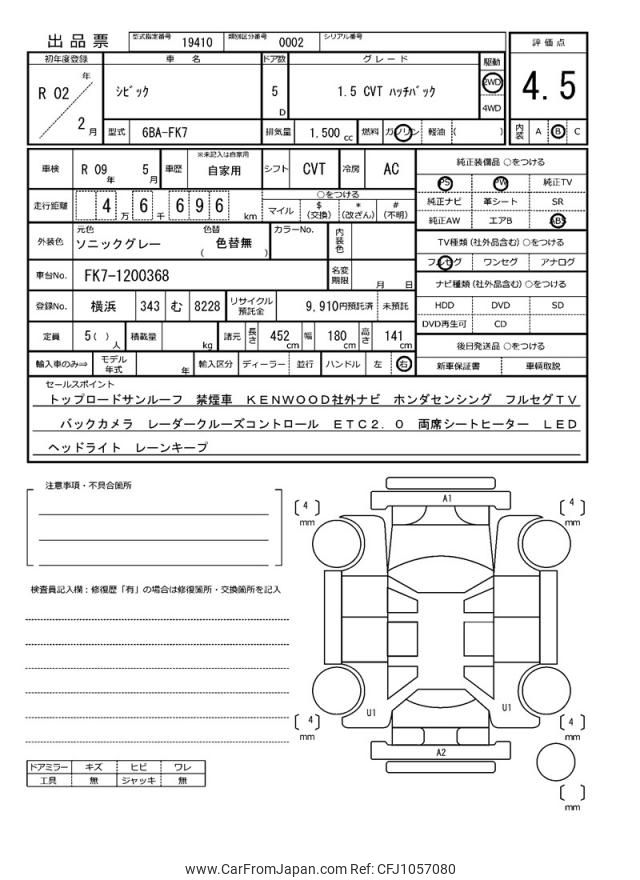 出品票 型式指定番号 19410 類別区分番号 0002 シリアル番号
初年度登録 車名 ドア数 グレード 駆動 評価点
R 02 年 2 月 シビック 5 D 1.5 CVT ハッチバック 2WD 4WD 4.5
型式 6BA-FK7 排気量 1.500 cc 燃料 ガソリン 軽油 ( ) 内装 A B C
車検 R 09 年 5 月 車歴 ※未記入は自家用 自家用 シフト CVT 冷房 AC
走行距離 4 万 6 千 6 9 6 km ○をつける マイル $ (交換) * (改ざん) # (不明)
外装色 元色 ソニックグレー 色替 ( 色替無 ) カラーNo. 内装色
車台No. FK7-1200368 名変期限 月 日
登録No. 横浜 343 む 8228 リサイクル預託金 9,910円預託済 未預託
定員 5( ) 人 積載量 kg 諸元 長さ 452 cm 幅 180 cm 高さ 141 cm
輸入車のみ⇒ モデル年式 年 輸入区分 ディーラー 並行 ハンドル 左 右
純正装備品 ○をつける
PS PW 純正TV
純正ナビ 革シート SR
純正AW エアB ABS
TV種類 (社外品含む) ○をつける
フルセグ ワンセグ アナログ
ナビ種類 (社外品含む) ○をつける
HDD DVD SD
DVD再生可 CD
後日発送品 ○をつける
新車保証書 車輌取説
セールスポイント
トップロードサンルーフ 禁煙車 KENWOOD社外ナビ ホンダセンシング フルセグTV
バックカメラ レーダークルーズコントロール ETC2.0 両席シートヒーター LED
ヘッドライト レーンキープ
注意事項・不具合箇所
検査員記入欄：修復歴「有」の場合は修復箇所・交換箇所を記入
ドアミラー キズ ヒビ ワレ
工具 無 ジャッキ 無
A1
[ 4 ] mm [ 4 ] mm
U1 U1
[ 4 ] mm [ 4 ] mm
A2
[ ] mm
www.CarFromJapan.com Ref: CFJ1057080